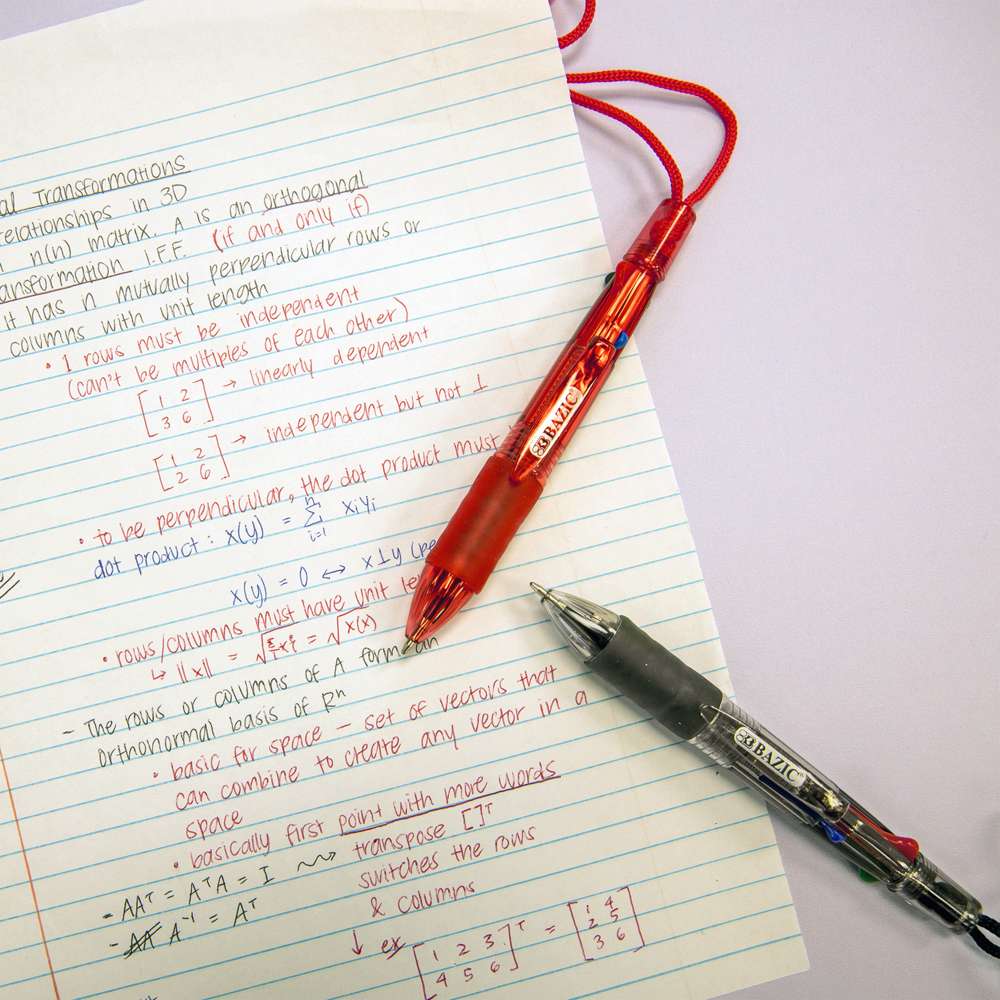 al Transformations
relationships in 3D
n(n) matrix. A is an orthogonal
ansformation I.F.F. (if and only if)
it has n mutually perpendicular rows or
columns with unit length
• 1 rows must be independent
(can't be multiples of each other)
[1 2
3 6] → linearly dependent
[1 2
2 6] → independent but not ⊥
• to be perpendicular, the dot product must
dot product: x(y) = n∑i=1 xiyi
x(y) = 0 ↔ x⊥y (pe
• rows/columns must have unit le
↳ ||x|| = = √x(x)
- The rows or columns of A form an
orthonormal basis of Rⁿ
• basic for space – set of vectors that
can combine to create any vector in a
space
• basically first point with more words
- AAᵀ = AᵀA = I ⇝ transpose []ᵀ
switches the rows
& columns
- AA A⁻¹ = Aᵀ
↓ ex
[1 2 3
4 5 6]ᵀ = [1 4
2 5
3 6]
BAZIC
BAZIC